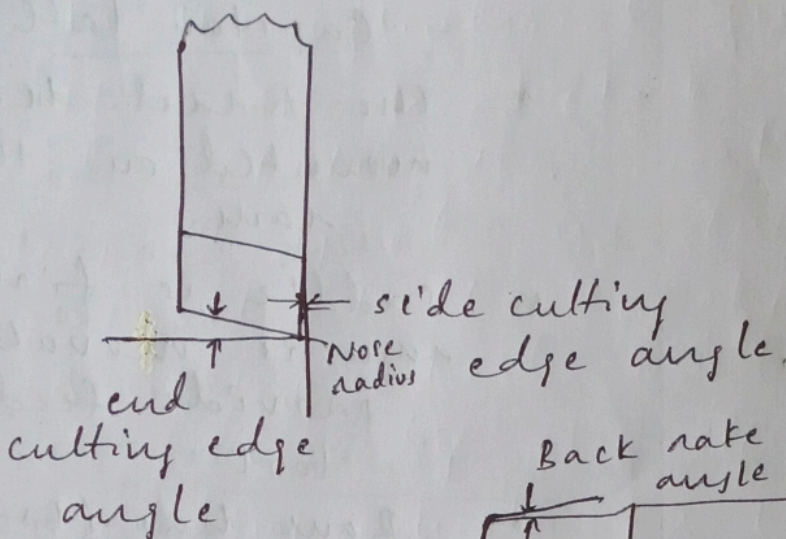 side cutting
edge angle
Nose
radius
end
cutting edge
angle
Back rake
angle